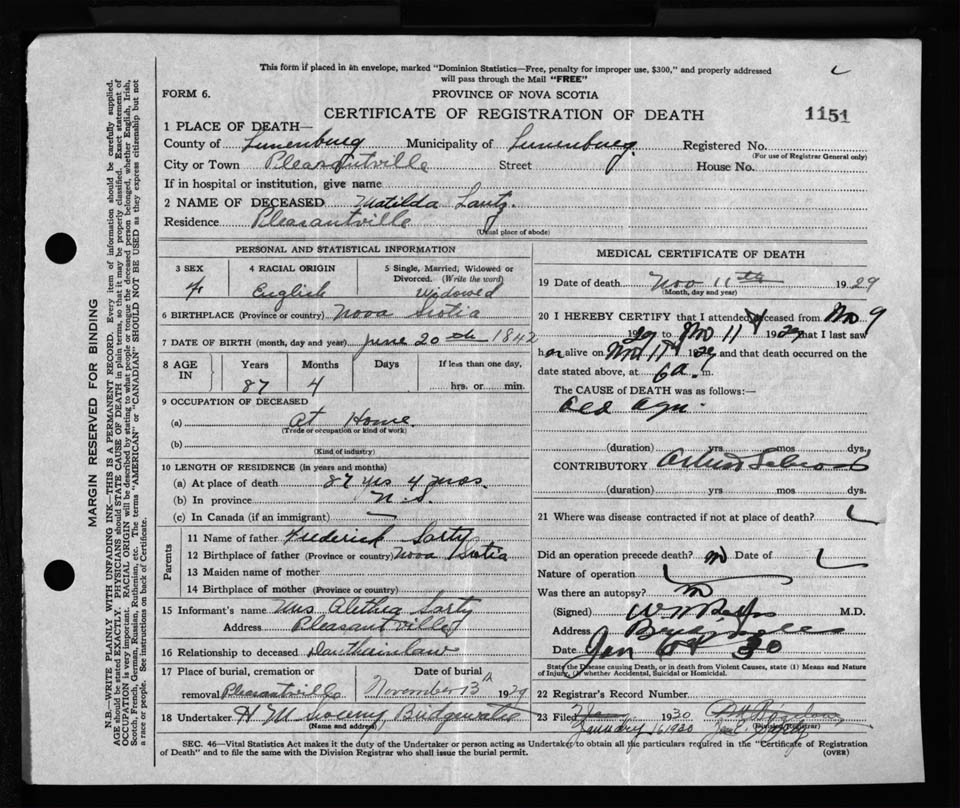 This form if placed in an envelope, marked "Dominion Statistics—Free, penalty for improper use, $300," and properly addressed
will pass through the Mail "FREE"
FORM 6. PROVINCE OF NOVA SCOTIA
CERTIFICATE OF REGISTRATION OF DEATH 1151
1 PLACE OF DEATH—
County of Lunenburg Municipality of Lunenburg Registered No.
(For use of Registrar General only)
City or Town Pleasantville Street House No.
If in hospital or institution, give name
2 NAME OF DECEASED Matilda
Residence Pleasantville
(Usual place of abode)
PERSONAL AND STATISTICAL INFORMATION
3 SEX 4 RACIAL ORIGIN 5 Single, Married, Widowed or Divorced. (Write the word)
F English Widowed
6 BIRTHPLACE (Province or country) Nova Scotia
7 DATE OF BIRTH (month, day and year) June 20th 1842
8 AGE IN Years Months Days If less than one day,
87 4 hrs. or min.
9 OCCUPATION OF DECEASED
(a) At Home
(Trade or occupation or kind of work)
(b)
(Kind of industry)
10 LENGTH OF RESIDENCE (in years and months)
(a) At place of death 87 yrs 4 mos.
(b) In province N.S.
(c) In Canada (if an immigrant) —
Parents
11 Name of father Frederick Sarty
12 Birthplace of father (Province or country) Nova Scotia
13 Maiden name of mother
14 Birthplace of mother (Province or country)
15 Informant's name Mrs Alethia Sarty
Address Pleasantville
16 Relationship to deceased
17 Place of burial, cremation or removal Pleasantville Date of burial November 13th 1929
18 Undertaker H M Bridgewater
(Name and address)
MEDICAL CERTIFICATE OF DEATH
19 Date of death Nov 11th 1929
(Month, day and year)
20 I HEREBY CERTIFY that I attended deceased from Nov 9
1929 to Nov 11 1929 that I last saw
her alive on Nov 11 1929 and that death occurred on the
date stated above, at 6 a. m.
The CAUSE of DEATH was as follows:—
Old Age
(duration) yrs mos dys.
CONTRIBUTORY
(duration) yrs mos dys.
21 Where was disease contracted if not at place of death?
Did an operation precede death? no Date of
Nature of operation
Was there an autopsy? no
(Signed) M.D.
Address
Date Jan 30
State the Disease causing Death, or in death from Violent Causes, state (1) Means and Nature of Injury, (2) whether Accidental, Suicidal or Homicidal.
22 Registrar's Record Number
23 Filed 1930
January 16 1930
(Division Registrar)
SEC. 46—Vital Statistics Act makes it the duty of the Undertaker or person acting as Undertaker to obtain all the particulars required in the "Certificate of Registration
of Death" and to file the same with the Division Registrar who shall issue the burial permit. (OVER)
MARGIN RESERVED FOR BINDING
N.B.—WRITE PLAINLY WITH UNFADING INK—THIS IS A PERMANENT RECORD. Every item of information should be carefully supplied.
AGE should be stated EXACTLY. PHYSICIANS should STATE CAUSE OF DEATH in plain terms, so that it may be properly classified. Exact statement of
OCCUPATION is very important. RACIAL ORIGIN will be described by stating to what people or tongue the deceased person belonged, whether English, Irish,
Scotch, French, German, Russian, Ruthenian, etc. The terms "AMERICAN" or "CANADIAN" SHOULD NOT BE USED as they express citizenship but not
a race or people. See instructions on back of Certificate.